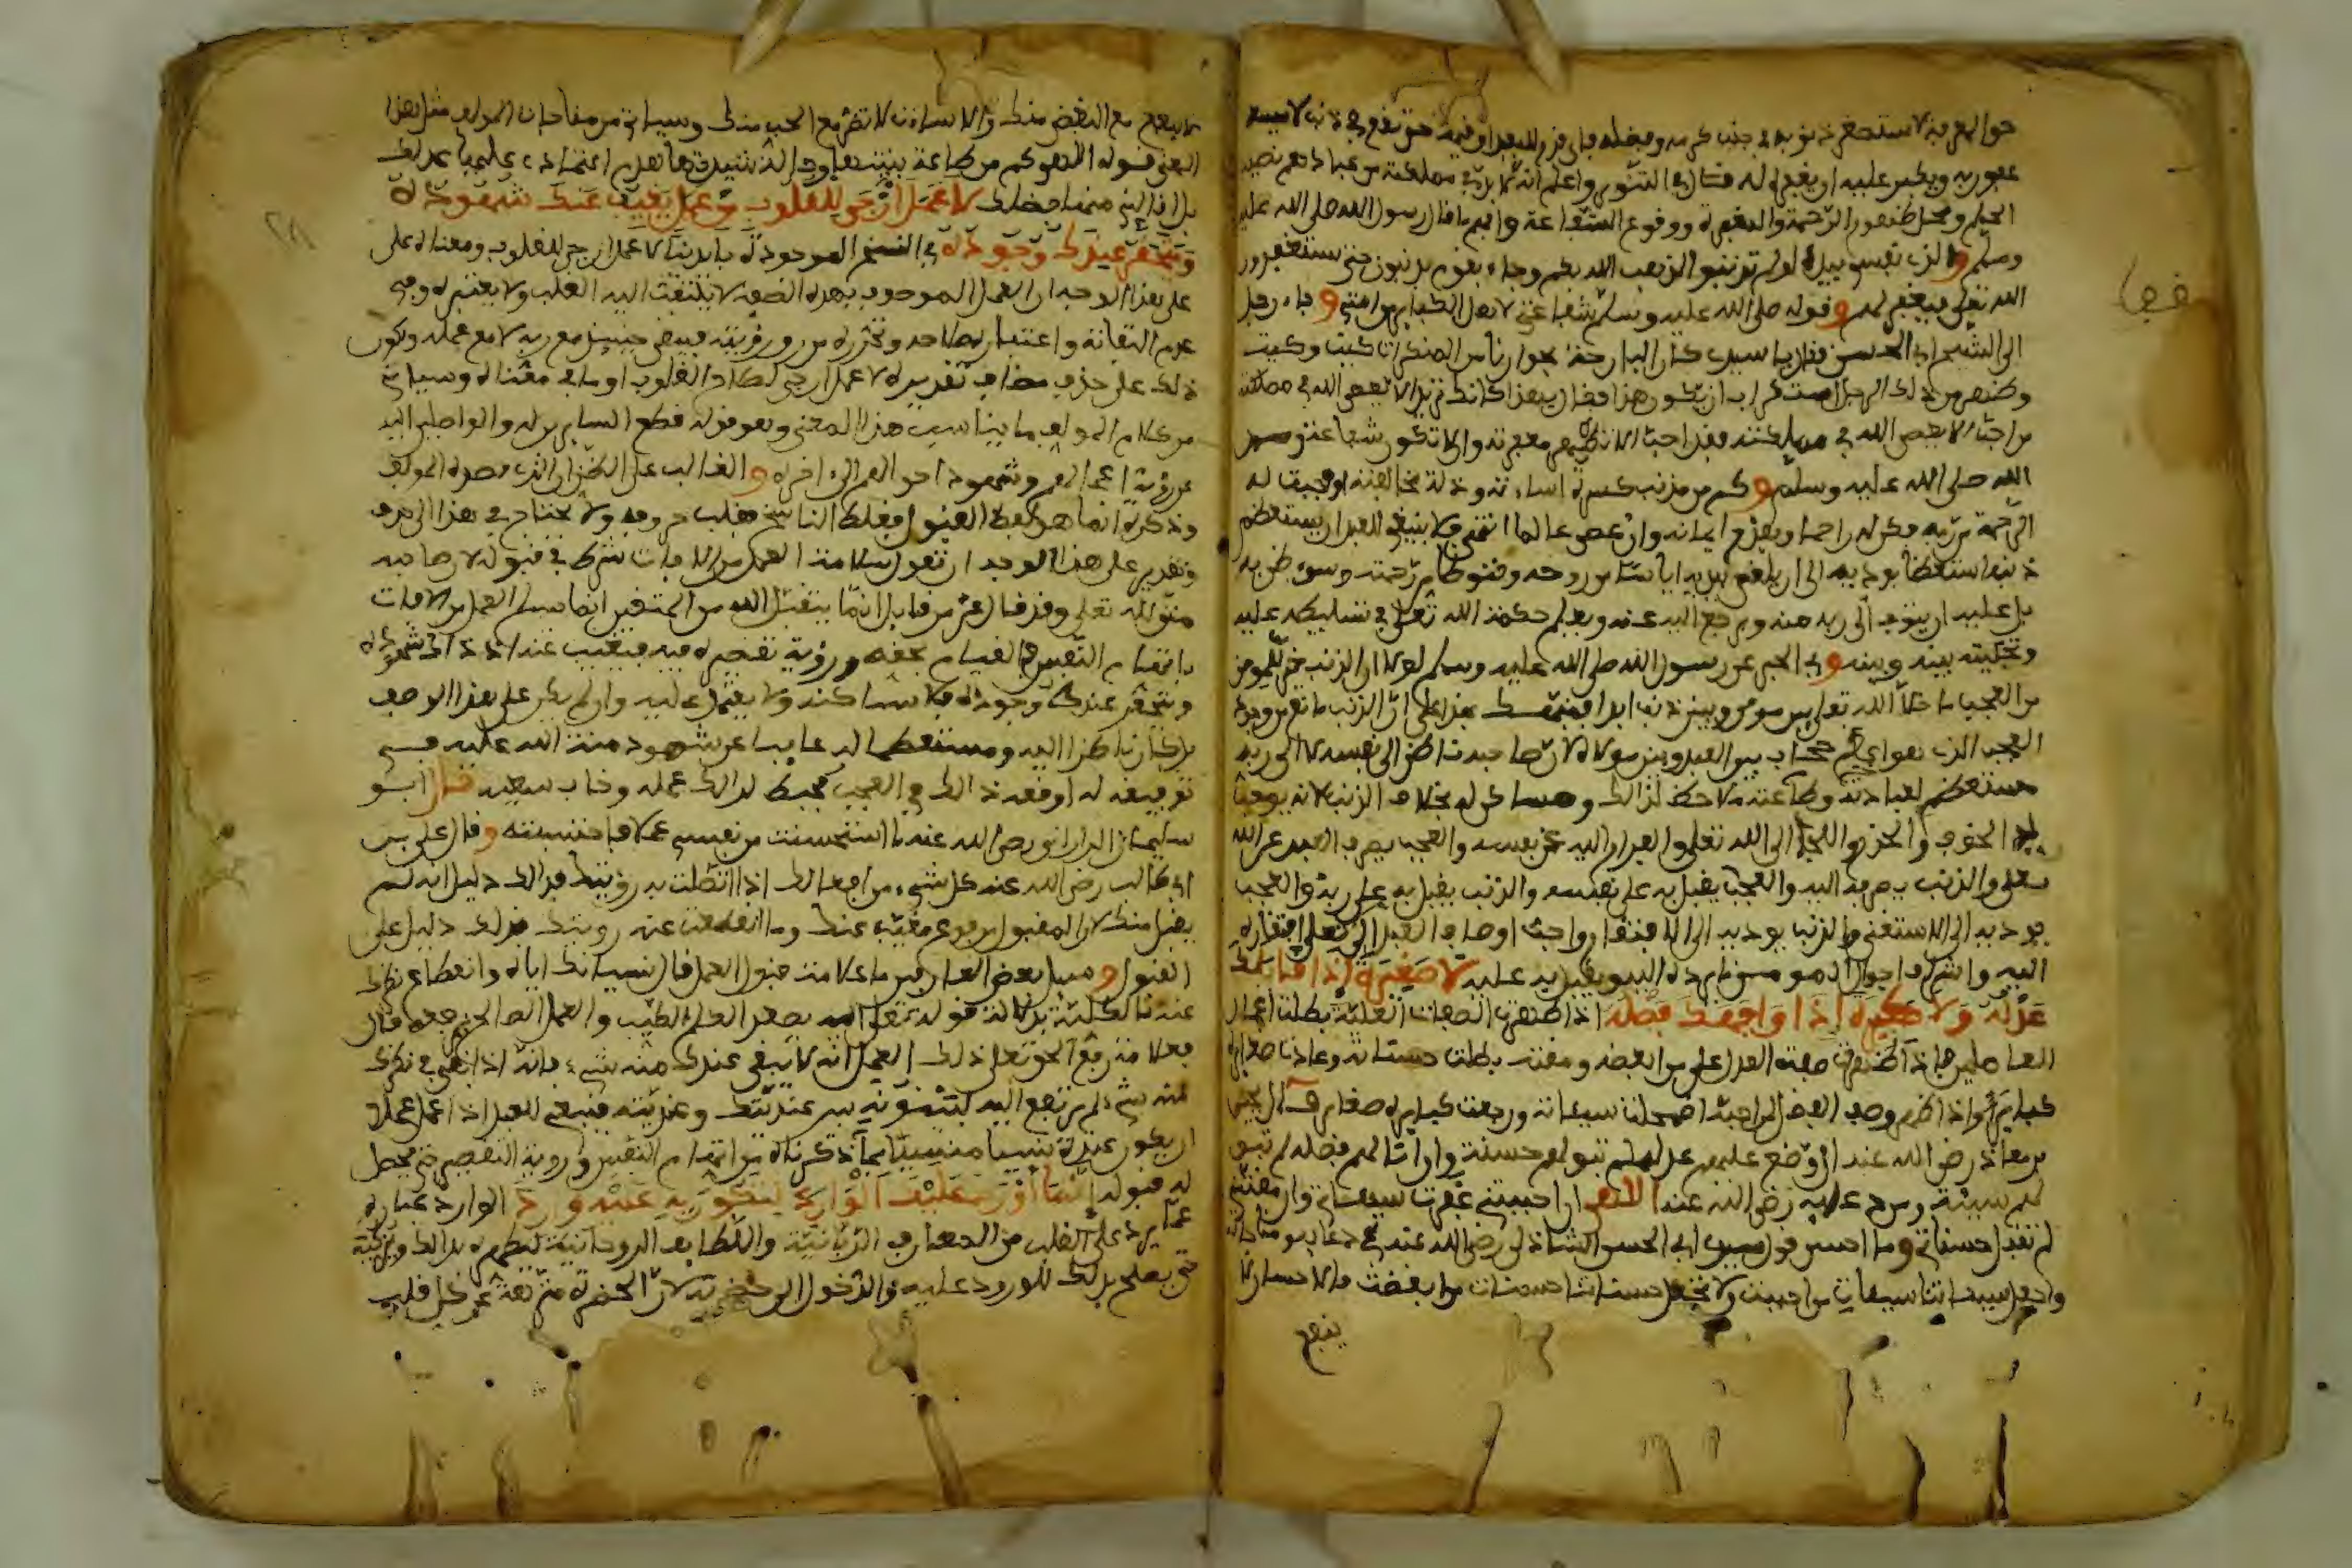 حق المعرفة لاستصغر ذنوبه في جنب كرمه وفضله فأي قدر للعبد أو قيمة حتى يقع في ذنب لا يسعه
عفو ربه ويكبر عليه أن يغفره له قال في التنوير واعلم أنه لا بد في مملكته من عباد هم نصيب
الحلم ومحل ظهور الرحمة والمغفرة ووقوع الشفاعة وافهم ما قال رسول الله صلى الله عليه
وسلم والذي نفسي بيده لو لم تذنبوا لذهب الله بكم وجاء بقوم يذنبون حتى يستغفرون
الله تعلى فيغفر لهم وقوله صلى الله عليه وسلم شفاعتي لاهل الكبائر من امتي وجاء رجل
الى الشيخ ابي الحسن فقال يا سيدي كان البارحة بجوارنا من المنكرات كيت وكيت
وظهر من ذلك الرجل استغراب ان يكون هذا فقال يا هذا كانك تريد الا يعصى الله في مملكته
من احب الا يعصى الله في مملكته فقد احب الا تظهر مغفرته والا تكون شفاعة رسول
الله صلى الله عليه وسلم وكم من مذنب كثرة اساءته وذلة مخالفته اوجبت له
الرحمة من ربه فكن له راحما وبقدر ايمانه وان عصى عالما انتهى ولا ينبغي للعبد ان يستعظم
ذنبه استعظاما يوديه الى ان يلقي بيديه اياسا من روحه وقنوطا من رحمته وسوء ظن به
بل عليه ان يتوب الى ربه منه ويرجع اليه عنه ويعلم حكمة الله تعلى في تسليطه عليه
وتخليته بينه وبينه وفي الخبر عن رسول الله صلى الله عليه وسلم لولا ان الذنب خير للمومن
من العجب ما خلا الله تعلى بين مومن وبين ذنب ابدا فنبه بهذا على ان الذنب مانع من وجود
العجب الذي هو اعظم حجاب بين العبد وبين مولاه لان صاحبه ناظر الى نفسه لا الى ربه
مستعظم لعبادته وطاعته ملاحظ لذلك ومساكن له بخلاف الذنب لانه يوجب
له الخوف والحذر واللجأ الى الله تعلى والفرار اليه عن نفسه والعجب يصرف العبد عن الله
تعلى والذنب يصرفه اليه والعجب يقبل به على نفسه والذنب يقبل به على ربه والعجب
يوديه الى الاستغناء والذنب يوديه الى الافتقار واحب اوصاف العبد الى الله تعلى افتقاره
اليه واشرف احوال المومن ما يرده اليه ويقبل به عليه لا صغيرة اذا قابلك
عدله ولا كبيرة اذا واجهك فضله اذا ظهرت الصفات العلية بطلت اعمال
العاملين فاذا ظهرت صفة العدل على من ابغضه ومقته بطلت حسناته وعادت صغائره
كبائر واذا ظهر وصف الفضل لمن احبه اضمحلت سيئاته ورجعت كبائره صغائر قال يحيى
بن معاذ رضي الله عنه ان وضع عليهم عدله لم تبق لهم حسنة وان انالهم فضله لم تبق
لهم سيئة ومن دعائه رضي الله عنه الاهي ان احببتني غفرت سيئاتي وان مقتتني
لم تقبل حسناتي وما احسن قول سيدي ابي الحسن الشاذلي رضي الله عنه في دعائه ومناجاته
واجعل سيئاتنا سيئات من احببت ولا تجعل حسناتنا حسنات من ابغضت فالاحسان لا
ينفع
لا ينفع مع البغض منك والاساءة لا تضر مع الحب منك وسياتي من مناجات المولف مثل هذا
المعنى قوله الاهي كم من طاعة بنيتها وحالة شيدتها هدم اعتمادي عليها عدلك
بل اقالني منها فضلك لا عمل ارجى للقلوب من عمل يغيب عنك شهوده
ويحتقر عندك وجوده في النسخ الموجودة بايدينا لا عمل ارجى للقلوب ومعناه على
على هذا الوجه ان العمل الموصوف بهذه الصفة لا يلتفت اليه القلب ولا يعتبره وفي
عدم التفاته واعتباره صلاحه وتحرره من رق رؤيته فيبقى حينئذ مع ربه لا مع عمله ويكون
ذلك على حذف مضاف تقديره لا عمل ارجى لصلاح القلوب او ما في معناه وسياتي
من كلام المولف ما يناسب هذا المعنى وهو قوله قطع السائرين له والواصلين اليه
عن رؤية اعمالهم وشهود احوالهم الى اخره والغالب على الظن ان الذي قصده المولف
وذكره انما هو لفظ القبول فغلط الناسخ فقلب حروفه ولا يحتاج في هذا الى حذف
وتقديره على هذا الوجه ان تقول سلامة العمل من الافات شرط في قبوله لان صاحبه
متق لله تعلى وقد قال عز من قايل انما يتقبل الله من المتقين وانما يسلم العمل من الافات
باتهام النفس في القيام بحقه ورؤية تقصيره فيه فيغيب عنه اذ ذاك شهوده
ويحتقر عندك وجوده فلا يساكنه ولا يعتمد عليه وان لم يكن على هذا الوصف
بل كان ناظرا اليه ومستعظما له غايبا عن شهود منة الله عليه في
توفيقه له اوقعه ذلك في العجب فحبط لذلك عمله وخاب سعيه قال ابو
سليمان الداراني رضي الله عنه ما استحسنت من نفسي عملا فاحتسبته وقال علي بن
ابي طالب رضي الله عنه كل شيء من افعالك اذا اتصلت به رؤيتك فذلك دليل انه لم
يقبل منك لان المقبول مرفوع مغيب عنك وما انقطعت عنه رؤيتك فذلك دليل على
القبول وسيل بعض العارفين ما علامة قبول العمل قال نسيانك اياه وانقطاع نظرك
عنه بالكلية بدلالة قوله تعلى اليه يصعد الكلم الطيب والعمل الصالح يرفعه قال
فعلامة رفع الحق تعلى ذلك العمل انه لا يبقى عندك منه شيء فانه اذا بقي في نظرك
منه شيء لم يرتفع اليه لبينونة بين عنديتك وعنديته فينبغي للعبد اذا عمل عملا
ان يكون عنده نسيا منسيا بما ذكرناه من اتهام النفس ورؤية التقصير حتى يحصل
له قبوله انما اورد عليك الوارد لتكون به عليه واردا الوارد عبارة
عما يرد على القلب من المعارف الربانية واللطايف الروحانية ليطهره بذلك ويزكيه
حتى يصلح بذلك للورود عليه والدخول الى حضرته لان الحضرة منزهة عن كل قلب